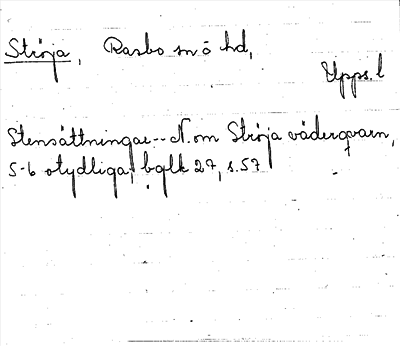 Ströja, Rasbo sn o hd,
Upps. l
Stensättningar -- N. om Ströja väderqvarn,
5-6 otydliga, bglk 27, s. 57